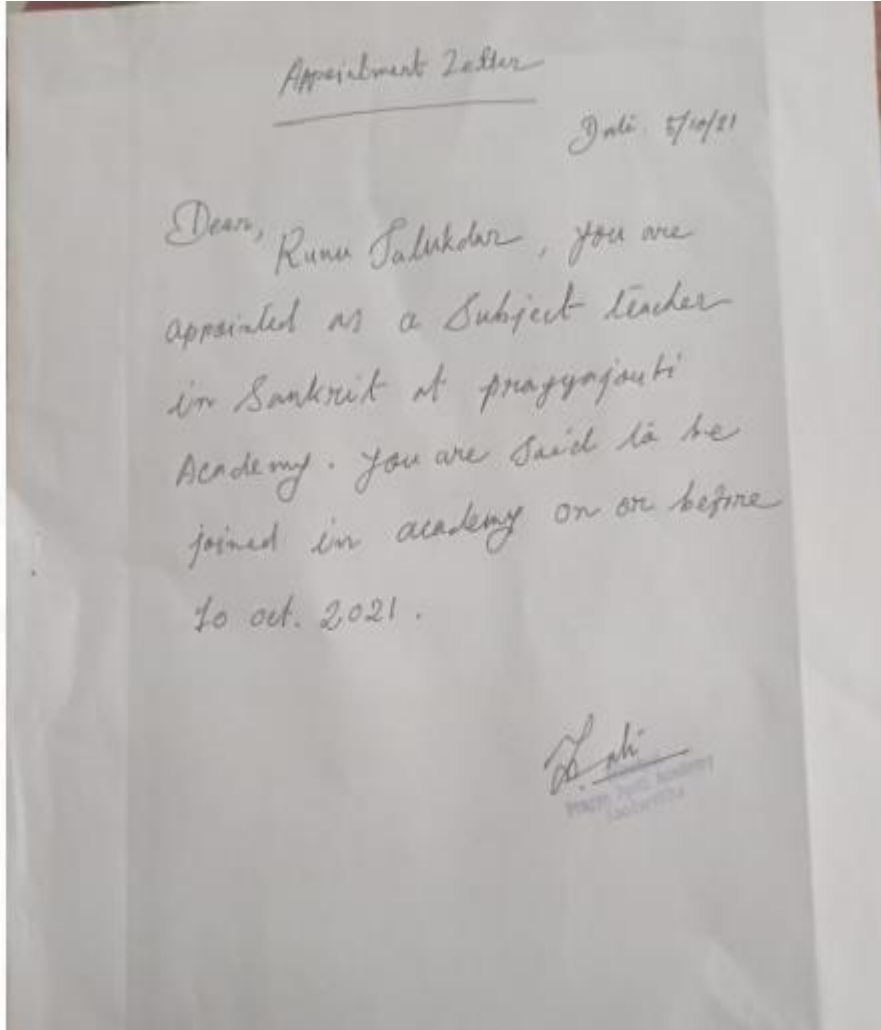 Appointment Letter
Date. 5/10/21
Dear,
Runu Talukdar, you are
appointed as a Subject teacher
in Sankrit at pragyajouti
Academy. you are said to be
joined in academy on or before
10 oct. 2021.
Academy